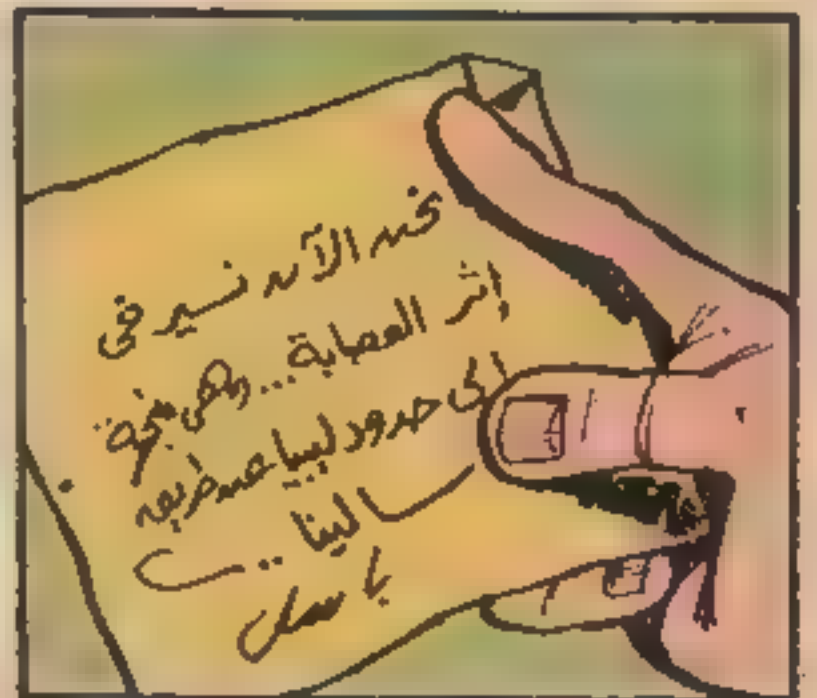 نحن الآن نسير في
إثر العصابة... وهى متجهة
إلى حدود ليبيا عن طريق
سالينا ..
باسل